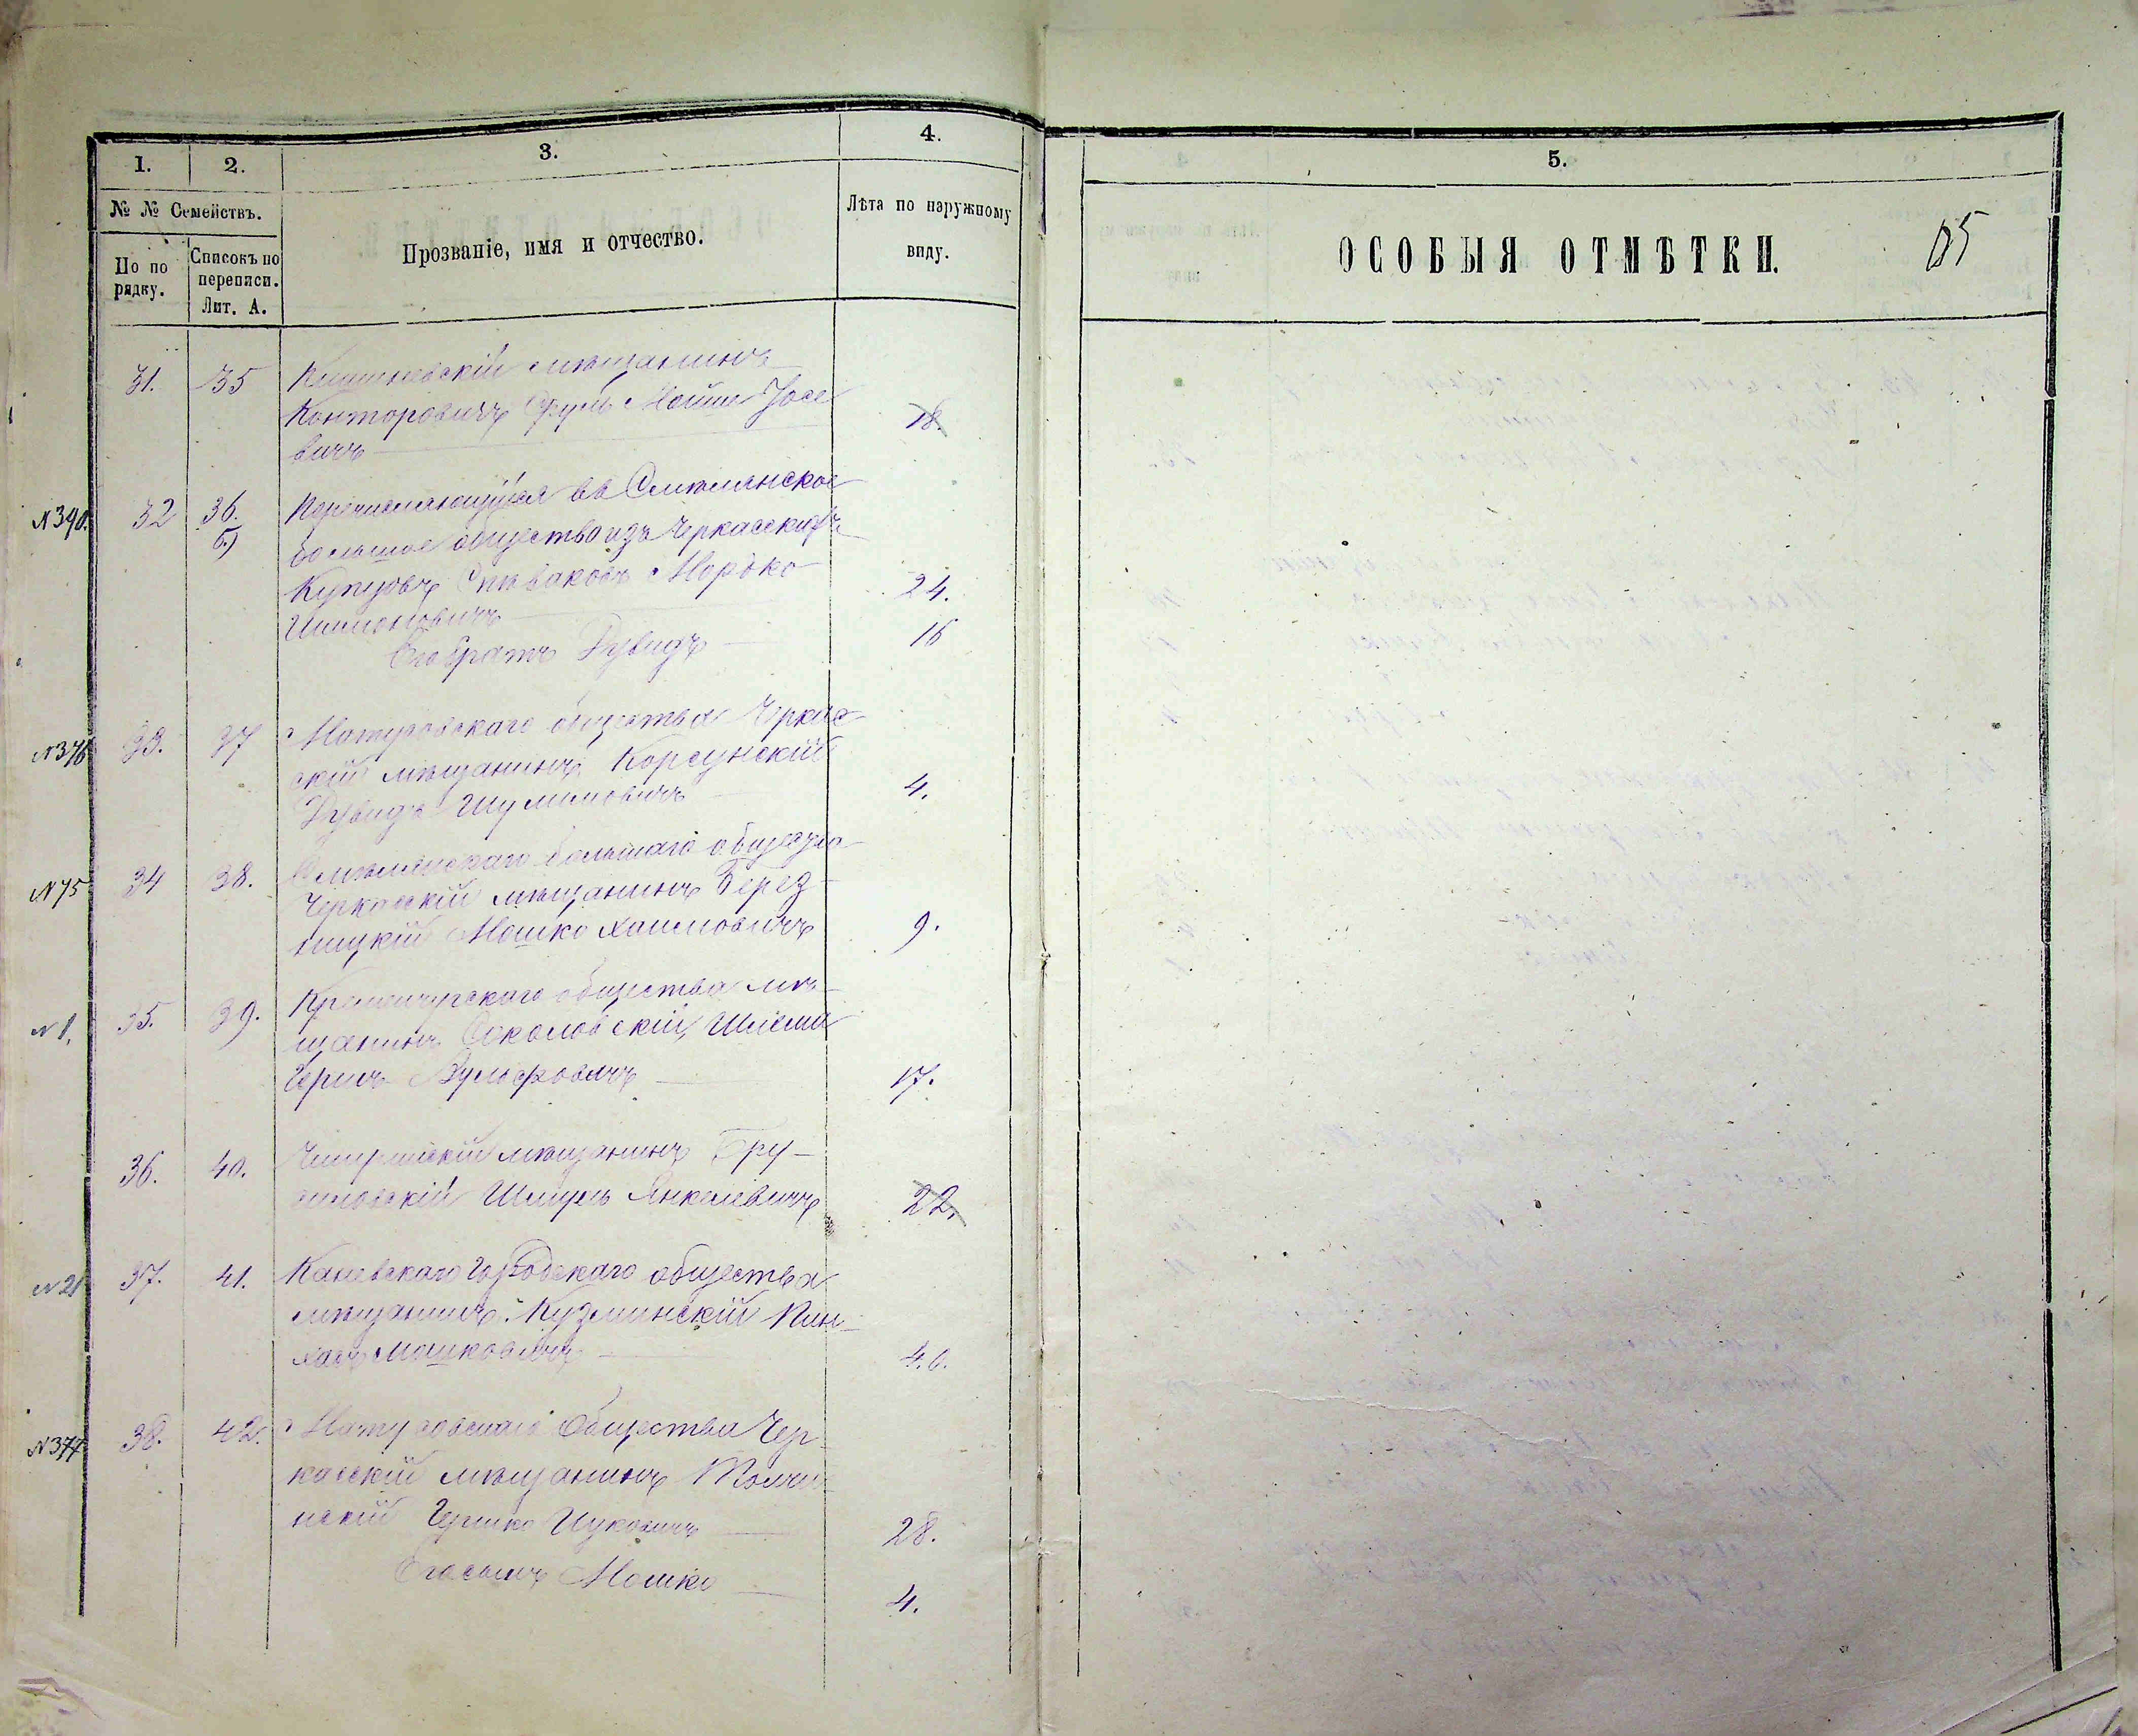 1.
2.
3.
4.
5.
№ № Семействъ.
По по
рядку.
Списокъ по
переписи.
Лит. А.
Прозваніе, имя и отчество.
Лѣта по наружному
виду.
ОСОБЫЯ ОТМѢТКИ.
31. 35 мѣщанинъ
Конторовичъ Мошко Іосе
вичъ 18.
№340. 32 36. Перечисляющійся въ Смѣлянское
б)
большое общество изъ Черкасскихъ
Купцовъ Спѣваковъ Мордко
24.
Его братъ Дувидъ 16
№376 33. 37 Матусовскаго общества Черкас
скій мѣщанинъ Корсунскій
Дувидъ Шулимовичъ 4.
№75 34 38. Смѣлянскаго большаго общества
Черкасскій мѣщанинъ Берез
ницкій Мошко Хаимовичъ 9.
№1. 35. 39. Кременчугскаго общества мѣ
щанинъ Соколовскій
Герш Вульфовичъ 17.
36. 40. Чигиринскій мѣщанинъ Бру-
силовскій Шмуль Янкелевичъ 22.
№21 37. 41. Каневскаго Городскаго общества
мѣщанинъ Кузминскій Пин
хасъ Мошковичъ 46.
№377 38. 42. Матусовскаго Общества Чер
касскій мѣщанинъ Толчи
нскій Гершко Ицковичъ 28.
Его сынъ Мошко 4.